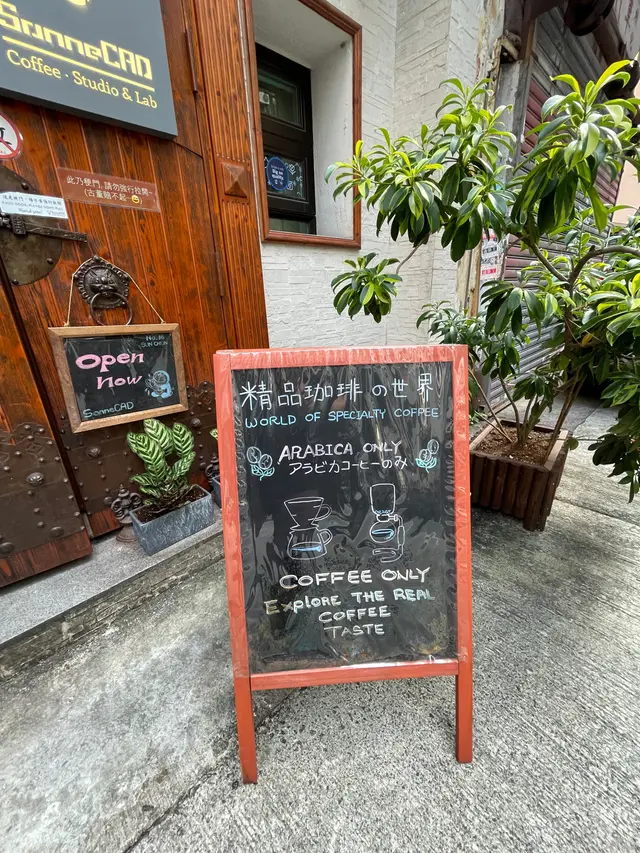 SonneCAD
Coffee · Studio & Lab
此乃梗門, 請勿強行拉開~
(古董賠不起~😄)
Open
Now
SonneCAD
精品珈琲の世界
WORLD OF SPECIALTY COFFEE
ARABICA ONLY
アラビカコーヒーのみ
COFFEE ONLY
Explore THE REAL
COFFEE
TASTE